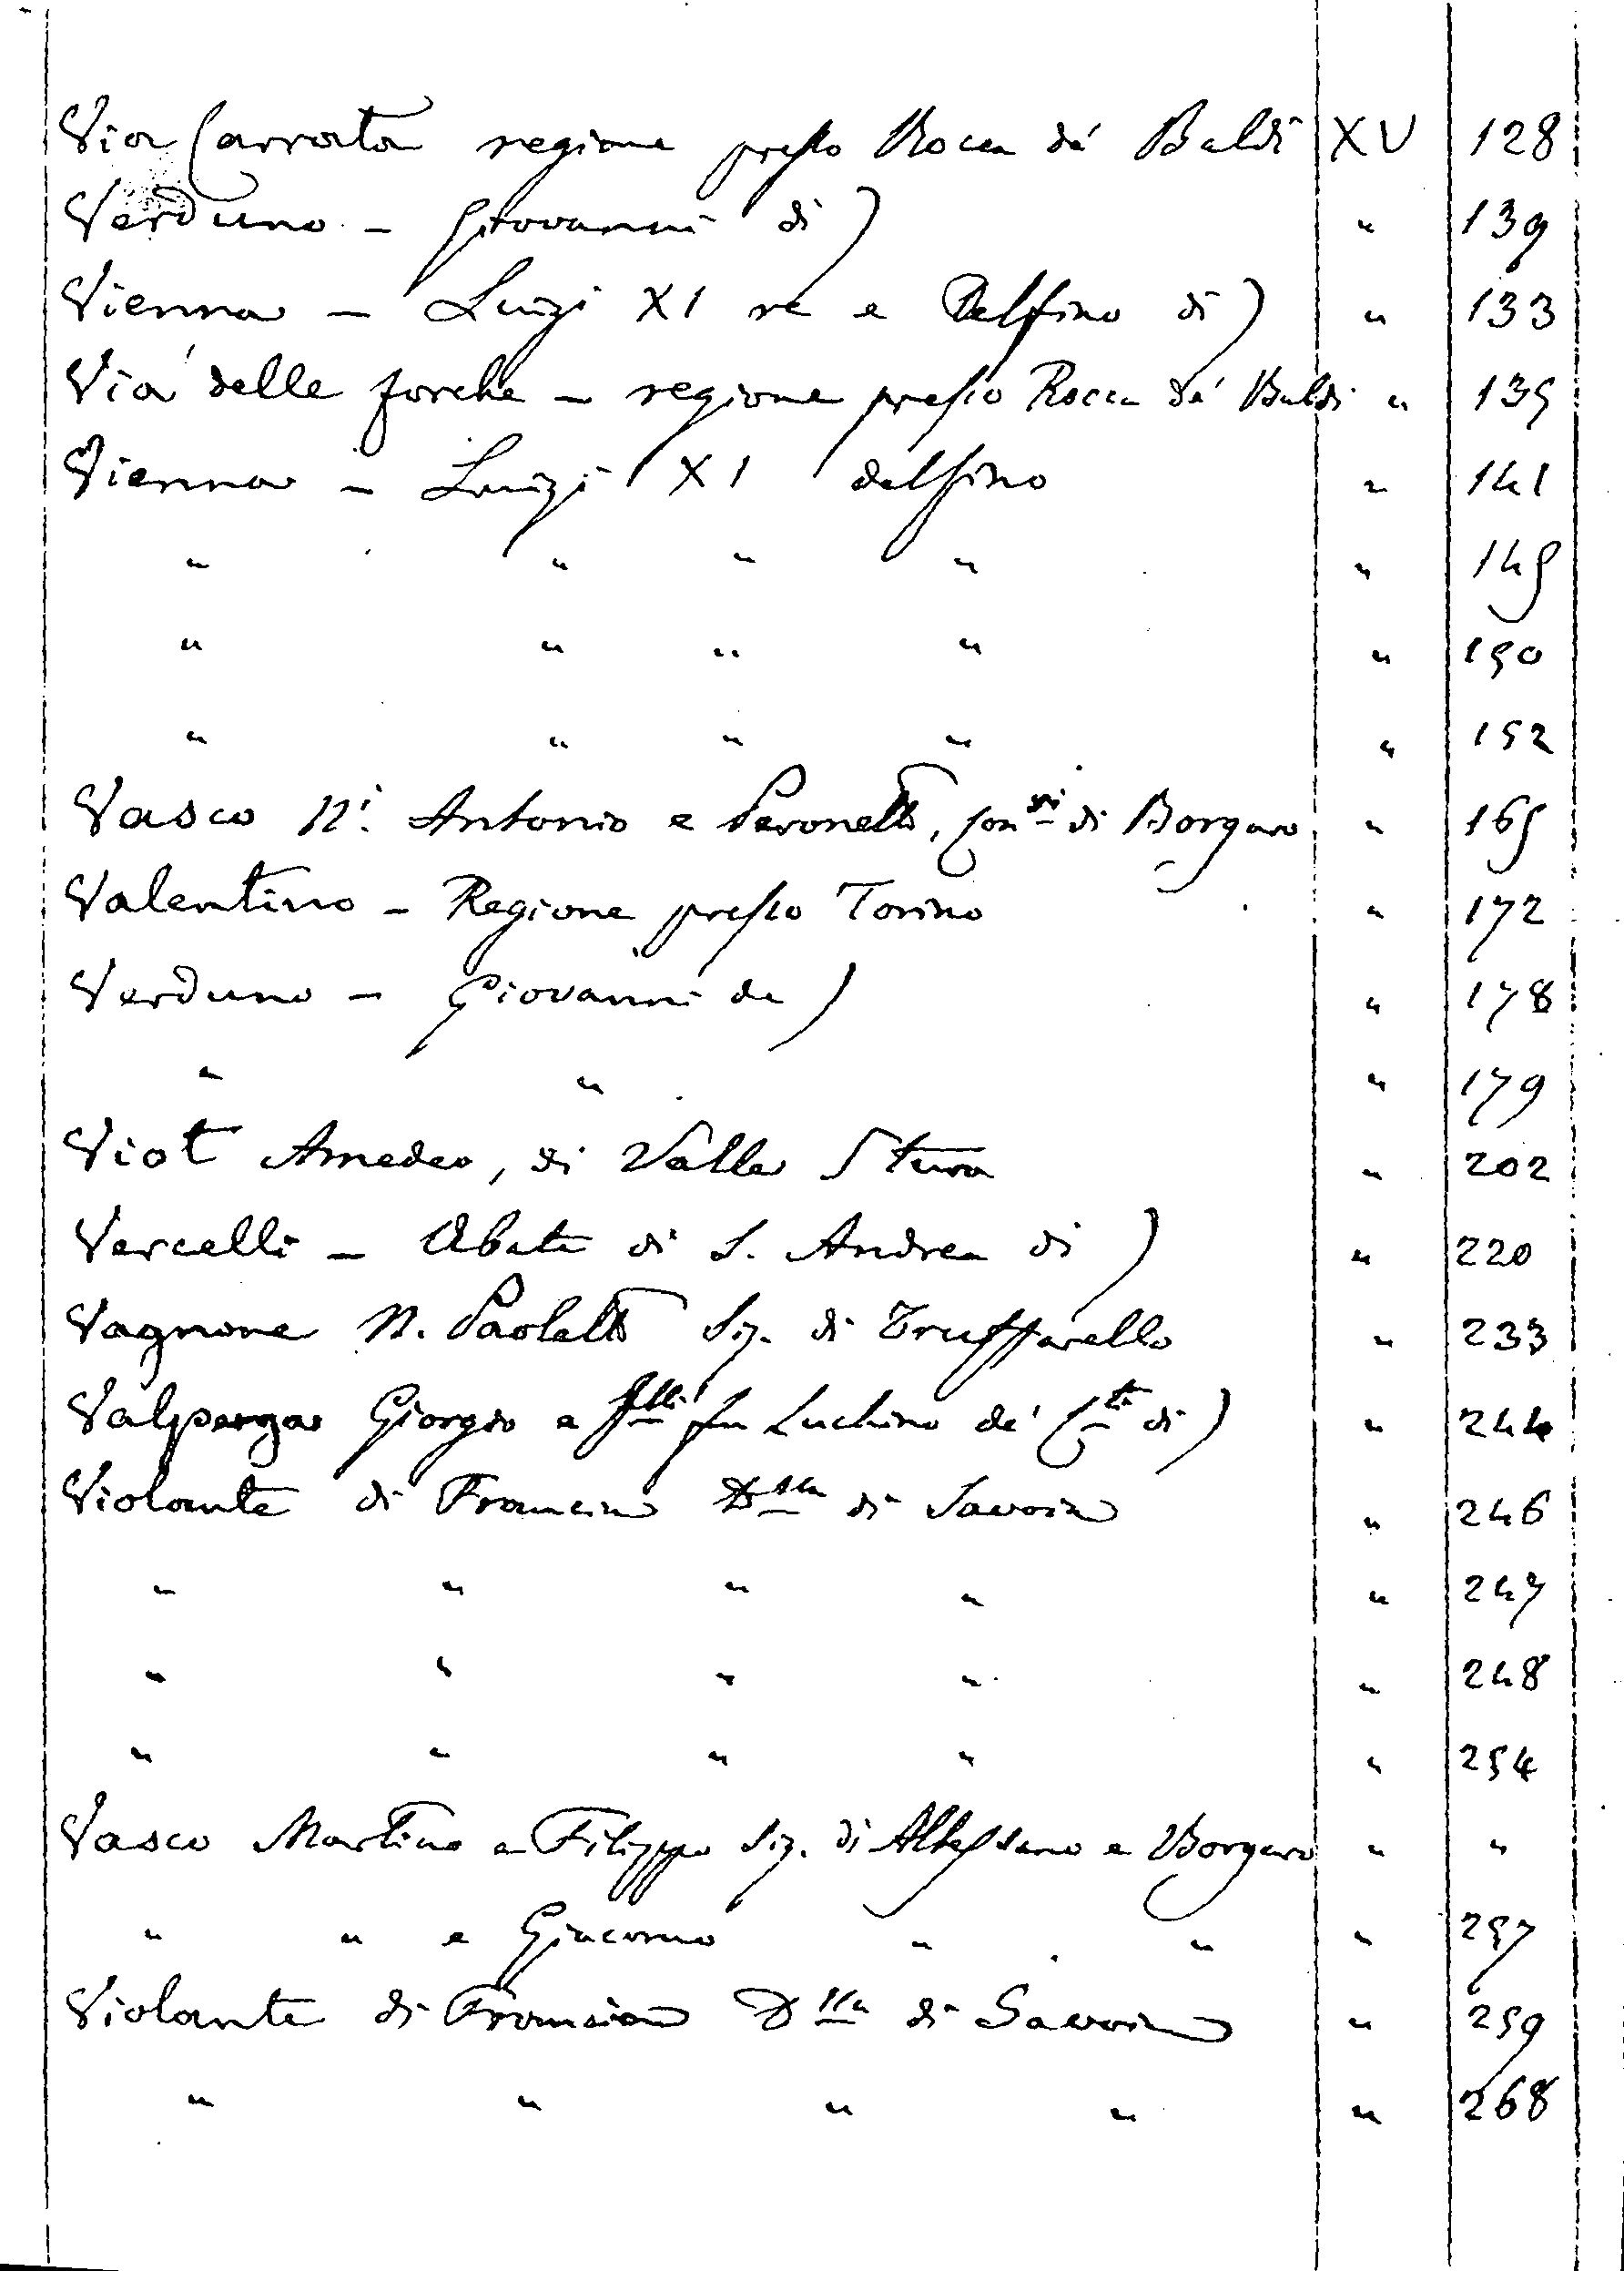 Via Carrata regione presso Rocca dé Baldi XV 128
Verduno - Giovanni di) " 139
Vienna - Luigi XI re e Delfino di) " 133
Via delle forche - regione presso Rocca dé Baldi " 135
Vienna - Luigi XI delfino " 141
" " " " " 145
" " " " " 150
" " " " " 152
Vasco Ni. Antonio e Peronetto, Conri di Borgaro " 165
Valentino - Regione presso Torino " 172
Verduno - Giovanni de) " 178
" " " 179
Viot Amedeo, di Valle Stura " 202
Vercelli - Abate di S. Andrea di) " 220
Vagnone N. Paoletto Sig. di Truffarello " 233
Valperga Giorgio e flli fu Luchino de' Cti di) " 244
Violante di Francia Dssa di Savoia " 246
" " " " " 247
" " " " " 248
" " " " " 254
Vasco Martino e Filippo Sig. di Altessano e Borgaro " "
" " e Giacomo " " " 257
Violante di Francia Dssa di Savoia " 259
" " " " " 268